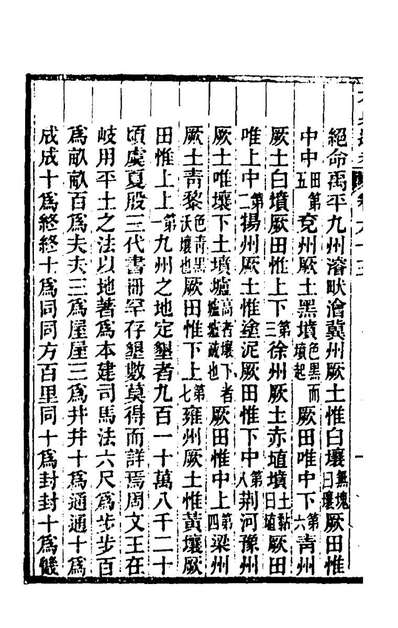 絕命禹平九州濬畎澮冀州厥土惟白壤無塊曰壤厥田惟
中中田第五兗州厥土黑墳色黑而墳起厥田惟中下第六青州
厥土白墳厥田惟上下第三徐州厥土赤埴墳土黏曰埴厥田
唯上中第二揚州厥土惟塗泥厥田惟下中第八荆河豫州
厥土唯壤下土墳壚高者壤下者壚壚疏也厥田惟中上第四梁州
厥土青黎色青黑沃壤也厥田惟下上第七雍州厥土惟黃壤厥
田惟上上第一九州之地定墾者九百一十萬八千二十
頃虞夏殷三代書冊罕存墾數莫得而詳焉周文王在
岐用平土之法以地著爲本建司馬法六尺爲步步百
爲畝畝百爲夫夫三爲屋屋三爲井井十爲通通十爲
成成十爲終終十爲同同方百里同十爲封封十爲畿